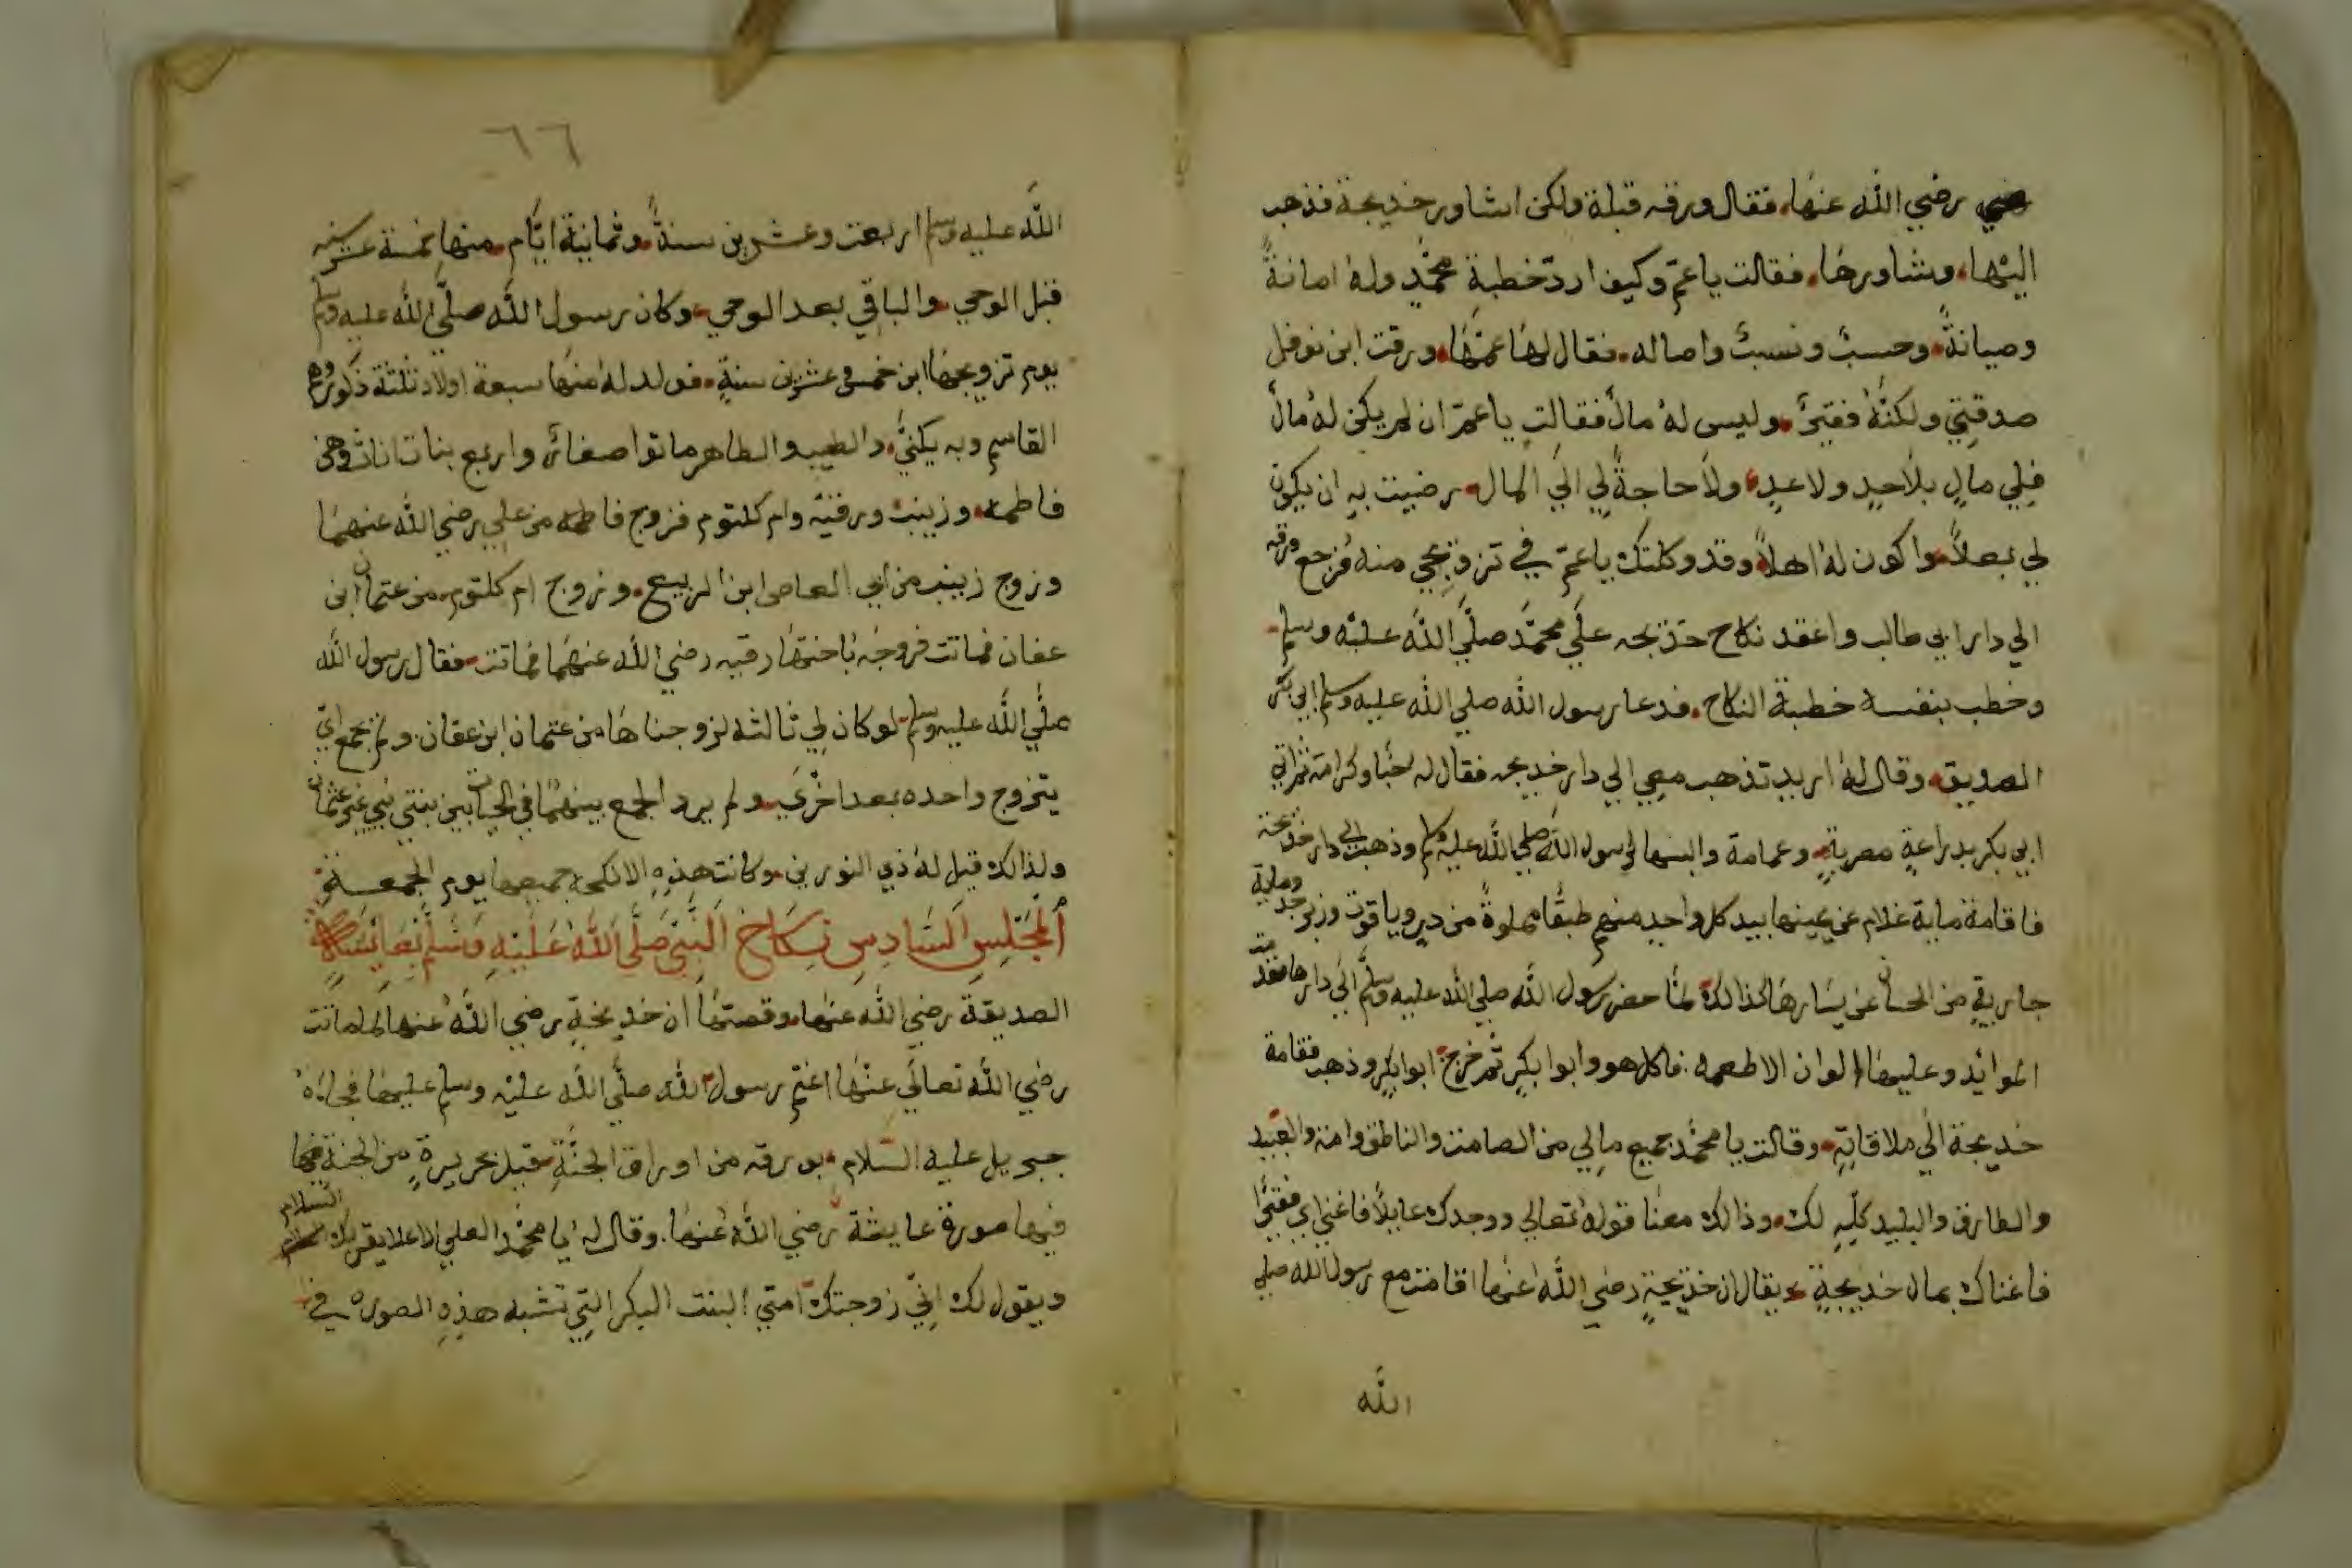 رضي الله عنها، فقال ورقه قبلة ولكن اشاور خديجة فذهب
اليها، وشاورها، فقالت ياعمّ وكيف اردّ خطبةِ محمّدٍ ولهُ امانةً
وصيانةً، وحسبٌ ونسبٌ واصاله، فقال لها عمّها، ورقت ابن نوفل
صدقتِي ولكنّهُ فقيرٌ، وليس لهُ مالٌ فقالت ياعمّ ان لم يكن لهُ مالٌ
فلِي مالٍ بلاحدٍ ولاعدٍ، ولاحاجةً لِي الَي المال، رضيت بهِ ان يكون
لي بعلاً، واكون لهُ اهلاً، وقد وكلتك ياعمّ في تزويجي منه فرجع ورقه
الي دار ابي طالب واعقد نكاح خذيجه علَي محمّد صلَّي اللّه عليْه وسلم
وخطب بنفسه خطبة النكاح، فدعا رسول الله صلي الله عليه وسلم ابي بكر
الصديق، وقال لهُ اريد تذهب معِي الي دار خديجه فقال له حُبّا وكرامة ثم اتي
ابي بكر بدراعةٍ مصريةٍ، وعمامة والبسها لرسول الله صلي الله عليه وسلم وذهب الي دار خديجة
فاقامة ماية غلام عن يمينها بيد كل واحدٍ منهم طبقًا مملوةً من درٍ وياقوت وزبرجد وماية
جاريةٍ من الحسان عن يسَارهَا كذالك، لمّا حضر رسول الله صلي الله عليه وسلم الَي دارها فقدمت
الموائد وعليهَا الوان الاطعمه، فاكل هو وابوا بكرٍ ثُم خرج ابوا بكرٍ وذهب فقامة
خديجة الَي ملاقاتِهِ، وقالت يا محمّد جميع مالِي من الصامت والناطق وامة والعَبيد
والطارق والبليد كلّهِ لك، وذالك معنا قولهُ تعالي ووجدك عايلاً فاغني اي فقيرًا
فاغناك بمال خديجةٍ، يقال ان خذيجةٍ رضي الله عنها اقامت مع رسول الله صلي
الله
٦٦
اللّه عليه وسلم اربعت وعشرين سنةً، وثمانية ايّام، منها خمسة عشر سنه
قبل الوحي، والباقي بعد الوحي، وكان رسول اللّه صلَّي الله عليه وسلم
يوم تزويجها ابن خمس وعشرين سنةٍ، فولد لهُ منهَا سبعة اولاد ثلثة ذكور وهم
القاسم وبه يكنيَّ، والطيب والطاهر ماتوا صغائر واربع بنات اناث وهن
فاطمه، وزينب ورقيّه وام كلثوم فزوج فاطمه من علي رضي الله عنهمَا
وزوج زينب من ابي العاص ابن الربيع، وزوج ام كلثوم، من عثمان ابن
عفان فماتت فزوجَه باختهَا رقيه رضي اللّه عنهُما فماتت، فقال رسول اللّه
صلَّي اللّه عليه وسلم، لوكان لِي ثالثه لزوجناهَا من عثمان ابن عفان، ولم يجمع ايّ
يتزوج واحده بعد اخرَي، ولم يرد الجمع بينهُمَا في الحيات بين بنتي نبي غير عثمان
ولذالك قيل لهُ ذي النورين، وكانت هذِهِ الانكحة جميعها يوم الجمعة
اَلمَجْلِسِ اَلسّادِسِ نِكَاحْ النَّبيّ صَلَّي اللّهُ عَلَيْهِ وَسَلّم بعَائِشَة
الصديقة رضي الله عنها، وقصتهَا ان خديجةٍ رضي اللّهُ عنها لما ماتت
رضي اللّه تعالَي عنْهَا اغتم رسول اللّه صلَّي اللّه عليْه وسلم عليهَا فجاءهُ
جبريل عليه السّلام، بورقه من اوراق الجنّةِ، قيل بحريرةٍ من الجنة فيها
فيها صورة عايشة رضي اللّهُ عنهَا، وقال لهُ يا محمّد العلي الاعلا يقريك السلام
ويقول لك انِّي زوجتك امتي البنت البكر التِي تشبه هذِهِ الصوره في